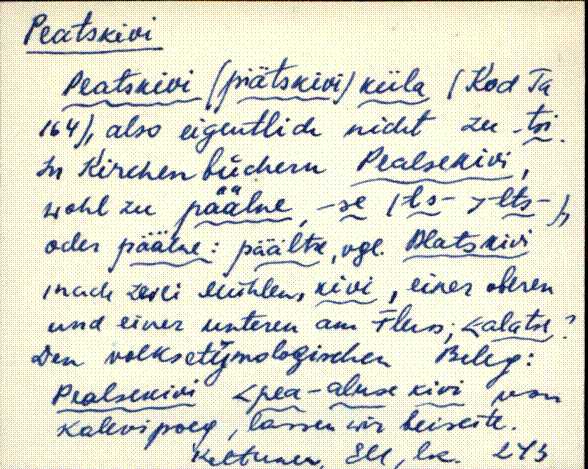 Peatskivi
Peatskivi (piätskivi) küla (Kod Ta
164), also eigentlich nicht zu -tsi.
In Kirchenbüchern Pealsekivi,
wohl zu päälne, -se (-ls- > -lts-),
oder päälne: päältse, vgl. Alatskivi
(nach zwei Mühlen, kivi, einer oberen
und einer unteren am Fluss; < alatse?
Den volksetymologischen Beleg:
Pealsekivi < pea-aluse kivi von
Kalevipoeg, lassen wir beiseite.
Kettunen, EU, lk. 243